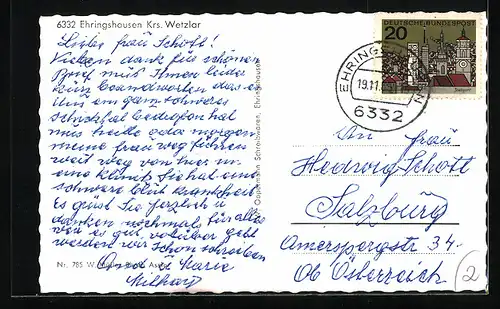 6332 Ehringshausen Krs. Wetzlar
Liebe Frau Schott!
Vielen dank für schönen
Brief mus Ihnen leider
kurz beandworten das es
Uns ein ganz schweres
Schicksal hat
mus heide oda morgen
meine frau weg führen
weit weg von hier in
eine klinik Sie hat eine
schwere blut krankheit
Es güst Sie herzlich u
danken nochmals für alles
wen es gut vorüber geht
werden wir schon schreiben
u Marie
Nr. 785 W
Schreibwaren, Ehringshausen
DEUTSCHE BUNDESPOST
20
EHRINGSHAUSEN
19.11.
6332
An Frau
Hedwig Schott
Salzburg
Amerspergstr 34.
Ob Österreich
2